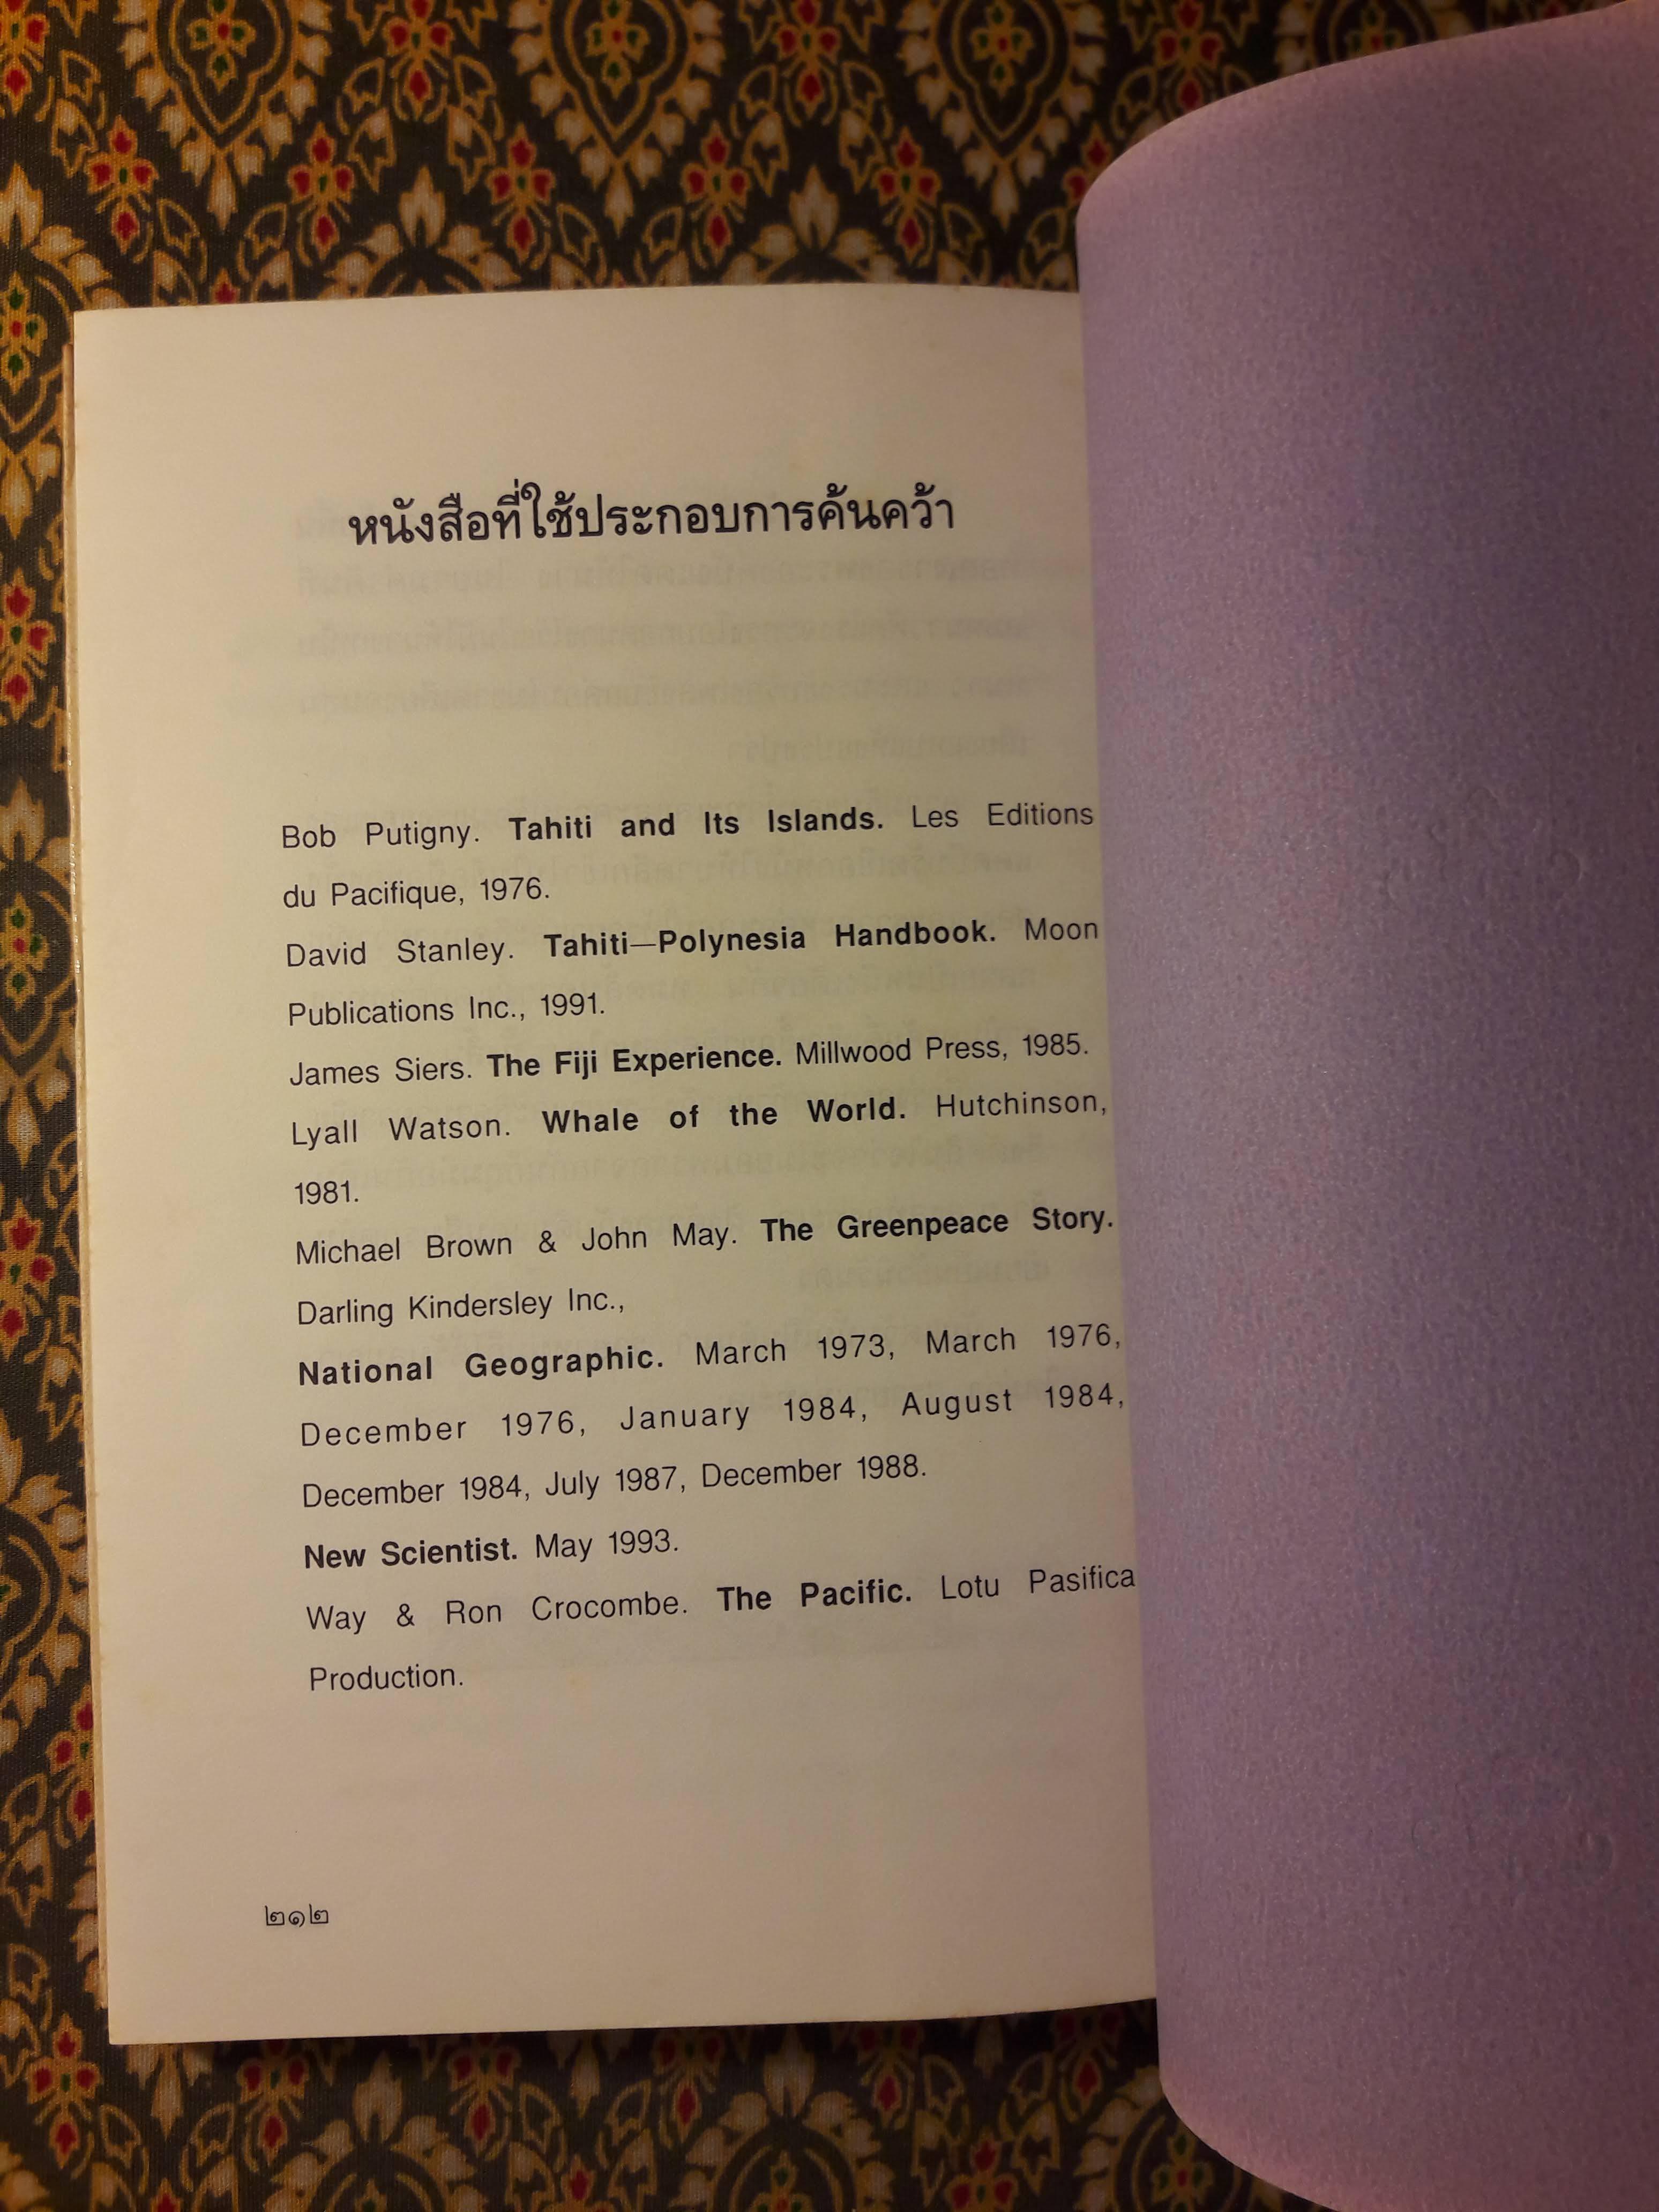 หนังสือที่ใช้ประกอบการค้นคว้า
Bob Putigny. Tahiti and Its Islands. Les Editions
du Pacifique, 1976.
David Stanley. Tahiti—Polynesia Handbook. Moon
Publications Inc., 1991.
James Siers. The Fiji Experience. Millwood Press, 1985.
Lyall Watson. Whale of the World. Hutchinson,
1981.
Michael Brown & John May. The Greenpeace Story.
Darling Kindersley Inc.,
National Geographic. March 1973, March 1976,
December 1976, January 1984, August 1984,
December 1984, July 1987, December 1988.
New Scientist. May 1993.
Way & Ron Crocombe. The Pacific. Lotu Pasifica
Production.
๒๑๒